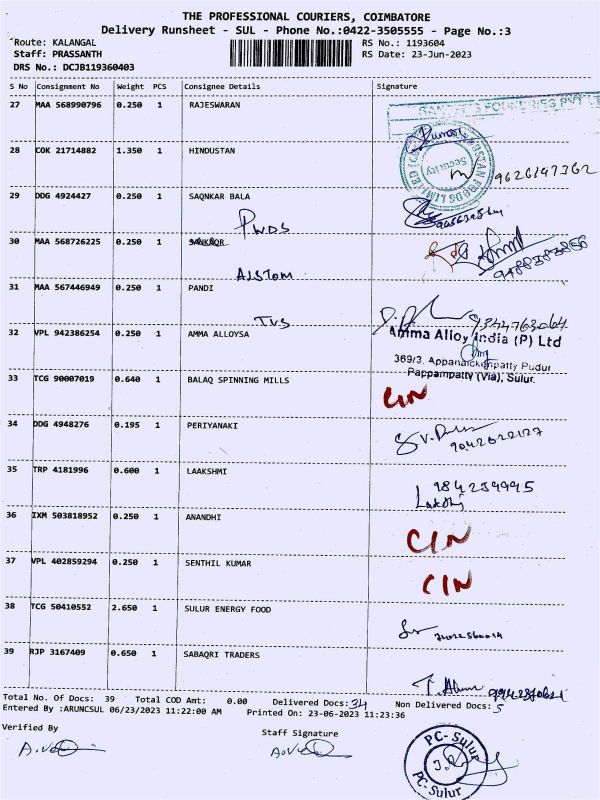 THE PROFESSIONAL COURIERS, COIMBATORE
Delivery Runsheet - SUL - Phone No.:0422-3505555 - Page No.:3
Route: KALANGAL RS No.: 1193604
Staff: PRASSANTH RS Date: 23-Jun-2023
DRS No.: DCJB119360403
S No Consignment No Weight PCS Consignee Details Signature
27 MAA 568990796 0.250 1 RAJESWARAN
28 COK 21714882 1.350 1 HINDUSTAN
Security
9626147362
29 DDG 4924427 0.250 1 SAQNKAR BALA
PWDS
30 MAA 568726225 0.250 1 SANKAQR
ALSTOM
31 MAA 567446949 0.250 1 PANDI
TVS
9344763064
32 VPL 942386254 0.250 1 AMMA ALLOYSA
Amma Alloy India (P) Ltd
369/3, Appanaickenpatty Pudur
Pappampatty (Via), Sulur.
33 TCG 90007019 0.640 1 BALAQ SPINNING MILLS
CIN
34 DDG 4948276 0.195 1 PERIYANAKI
9042622127
35 TRP 4181996 0.600 1 LAAKSHMI
984259995
36 IXM 503818952 0.250 1 ANANDHI
CIN
37 VPL 402859294 0.250 1 SENTHIL KUMAR
CIN
38 TCG 50410552 2.650 1 SULUR ENERGY FOOD
39 RJP 3167409 0.650 1 SABAQRI TRADERS
Total No. Of Docs: 39 Total COD Amt: 0.00 Delivered Docs: 34 Non Delivered Docs: 5
Entered By :ARUNCSUL 06/23/2023 11:22:00 AM Printed On: 23-06-2023 11:23:36
Verified By Staff Signature
PC-Sulur
PC-Sulur